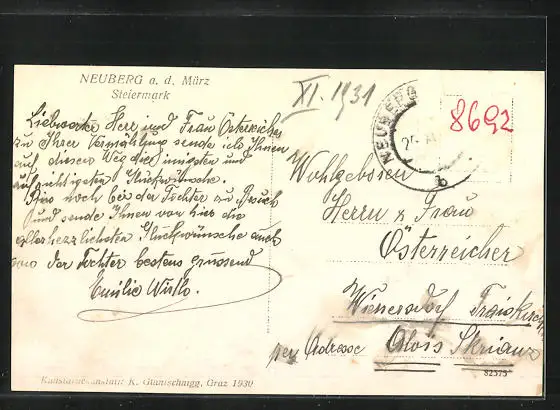 NEUBERG a. d. Mürz
Steiermark
XI. 1931
NEUBERG
b
8692
Liebwerte Herr und Frau Österreicher
zu Ihrer Vermählung sende ich Ihnen
auf diesem Weg die innigsten und
aufrichtigsten Glückwünsche.
noch bei der Tochter zu Besuch
und sende Ihnen von hier die
allerherzlichsten Glückwünsche auch
von der Tochter bestens grüssend
Emilie
Wohlgeboren
Herrn & Frau
Österreicher
Wienersdorf Traiskirchen
per Adresse Alois Skrianz
Kunstanstalt K. Glantschnigg, Graz 1930
82575